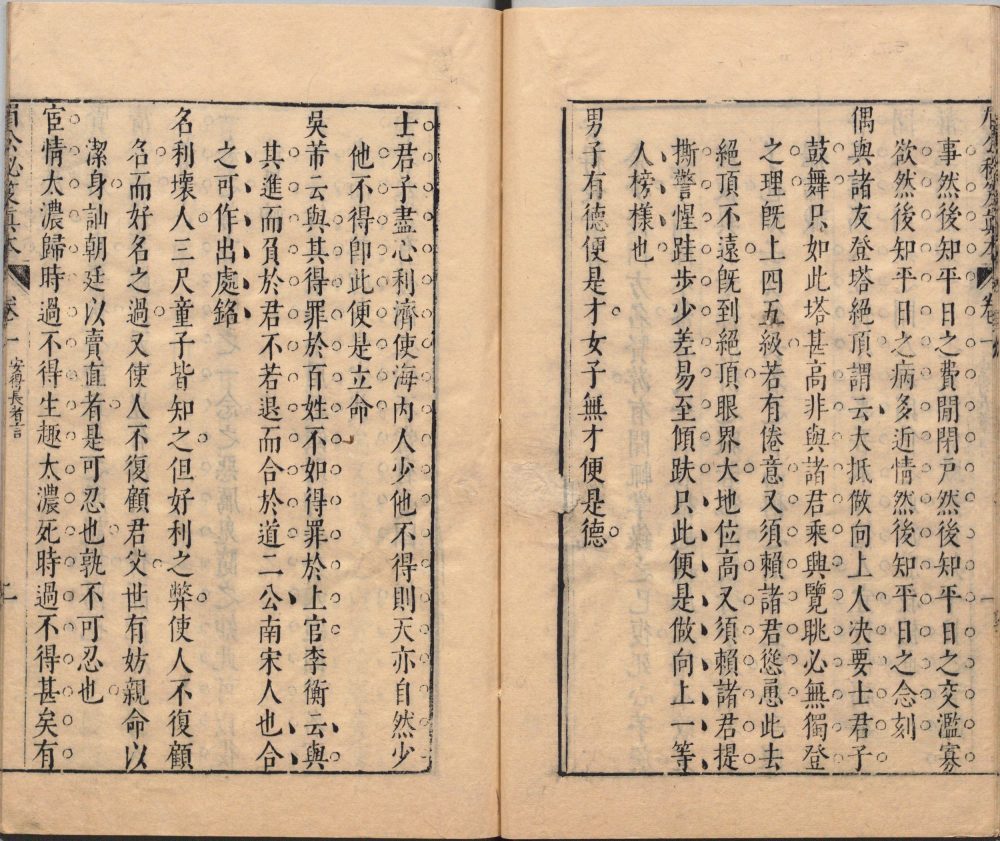 事然後知平日之費閒閉戶然後知平日之交濫寡
欲然後知平日之病多近情然後知平日之念刻
偶與諸友登塔絕頂謂云大抵做向上人決要士君子
鼓舞只如此塔甚高非與諸君乘興覽眺必無獨登
之理旣上四五級若有倦意又須賴諸君慫恿此去
絕頂不遠旣到絕頂眼界大地位高又須賴諸君提
撕警惺跬步少差易至傾趺只此便是做向上一等
人榜樣也
男子有德便是才女子無才便是德
士君子盡心利濟使海內人少他不得則天亦自然少
他不得卽此便是立命
吳芾云與其得罪於百姓不如得罪於上官李衡云與
其進而負於君不若退而合於道二公南宋人也合
之可作出處銘
名利壞人三尺童子皆知之但好利之弊使人不復顧
名而好名之過又使人不復顧君父世有妨親命以
潔身訕朝廷以賣直者是可忍也孰不可忍也
宦情太濃歸時過不得生趣太濃死時過不得甚矣有
眉公祕笈眞本 卷一 安得長者言 二